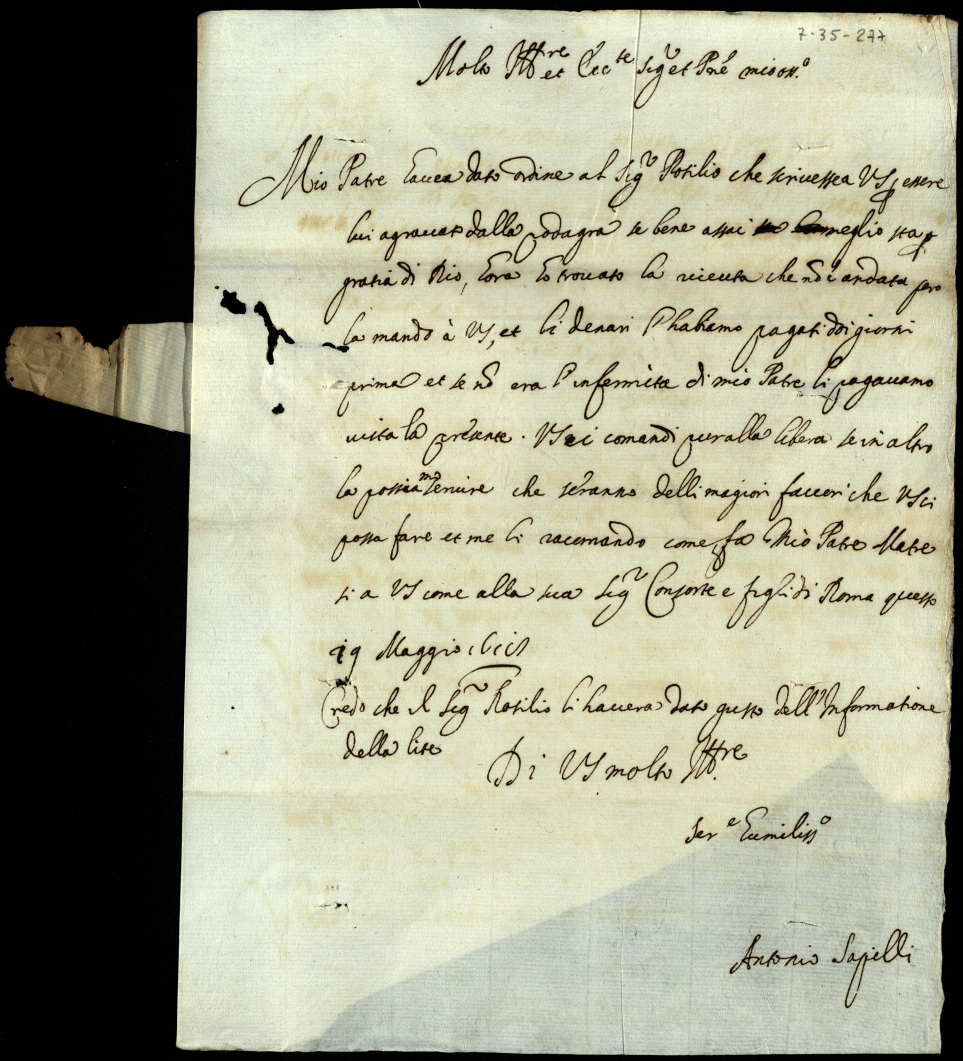 7-35-277
Molto Ill.re et Ecc.te Sig.r et Pne mio oss.o
Mio Patre haueua dato ordine al Sig.r Rotilio che scriuesse a VS p essere
lui agrauato dalla podagra se bene assai meglio sta p
gratia di Dio, hora ho trouato la riceuta che nõ è andata pero
la mando à VS, et li denari l'habiamo pagati doi giorni
prima et se nõ era l'infermita di mio Patre li pagauamo
uista la presente. VS ci comandi pur alla libera se in altro
la possiamo seruire che seranno delli magiori fauori che VS ci
possa fare et me li racomando come fa Mio Patre Matre
si a VS come alla sua Sig.r Consorte e figli di Roma questo
19 Maggio
Credo che il Sig.r Rotilio li hauera dato gusto dell'Informatione
della lite
Di VS molto Ill.re
Ser.e humiliss.o
Antonio Sapilli